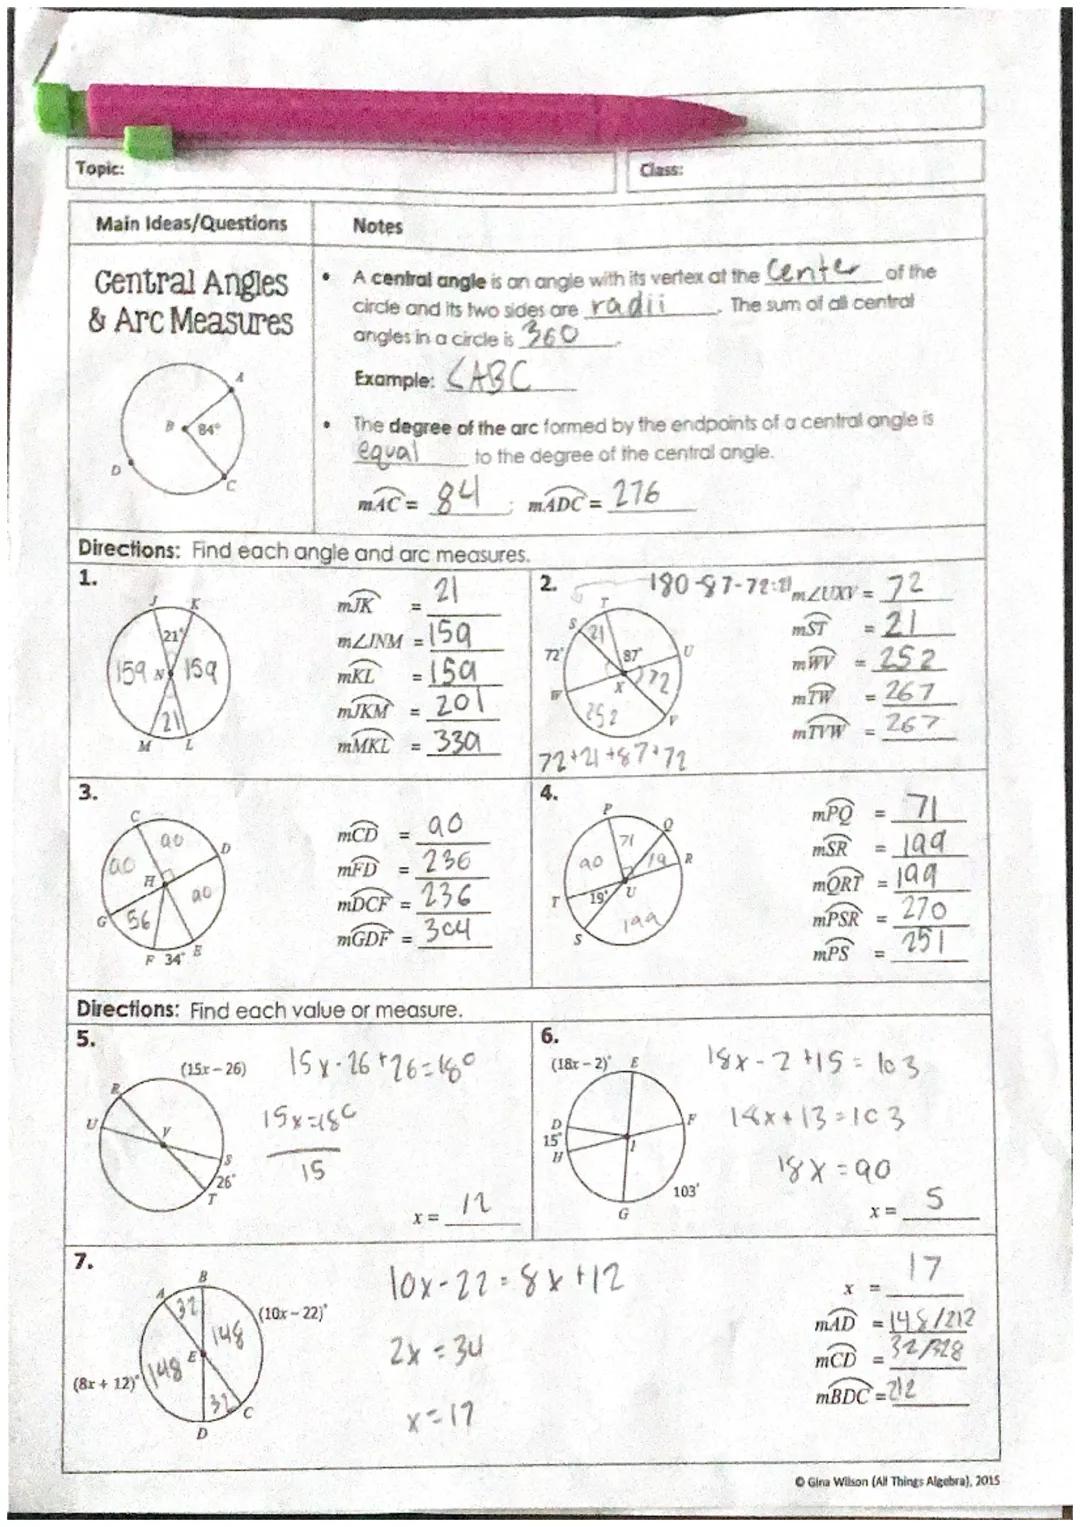 Topic:
Class:
Main Ideas/Questions
Notes
Central Angles
& Arc Measures
A
B
84°
D
C
• A central angle is an angle with its vertex at the center of the
circle and its two sides are radii. The sum of all central
angles in a circle is 360.
Example: ∠ABC
• The degree of the arc formed by the endpoints of a central angle is
equal to the degree of the central angle.
mAC = 84 ; mADC = 276
Directions: Find each angle and arc measures.
1.
J K
21°
159 N 159
21
M L
mJK = 21
m∠JNM = 159
mKL = 159
mJKM = 201
mMKL = 339
2.
180-87-72=21
T
S 21
72° 87° U
X 72
W
252 V
72+21+87+72
m∠UXV = 72
mST = 21
mWV = 252
mTW = 267
mTVW = 267
3.
C
90 D
90 H
90
G 56
F 34° E
mCD = 90
mFD = 236
mDCF = 236
mGDF = 304
4.
P
71 Q
90 19 R
T 19° U
S 199
mPQ = 71
mSR = 199
mQRT = 199
mPSR = 270
mPS = 251
Directions: Find each value or measure.
5.
(15x – 26)
R
U V
S
26°
T
15x-26+26=180
15x=180
15
x = 12
6.
(18x – 2)° E
D F
15° I
H
103°
G
18x-2+15=103
18x+13=103
18x=90
x = 5
7.
B
A 32
(10x – 22)°
148
E
148
(8x + 12)°
32 C
D
10x-22=8x+12
2x=34
x=17
x = 17
mAD = 148/212
mCD = 32/328
mBDC = 212
© Gina Wilson (All Things Algebra), 2015